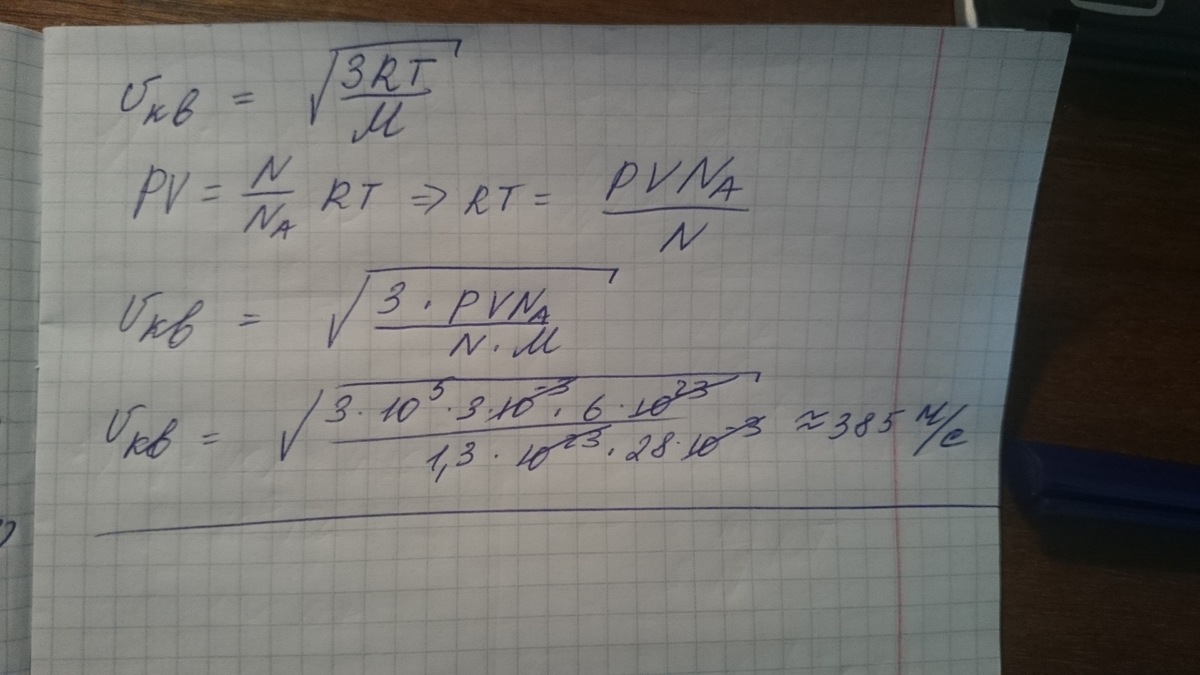 υкв = √(3RT/M)
PV = N/N_A RT ⇒ RT = PVN_A/N
υкв = √(3 · PVN_A/N · M)
υкв = √(3 · 10⁵ · 3 · 10⁻³ · 6 · 10²³/1,3 · 10²³ · 28 · 10⁻³) ≈ 385 м/с